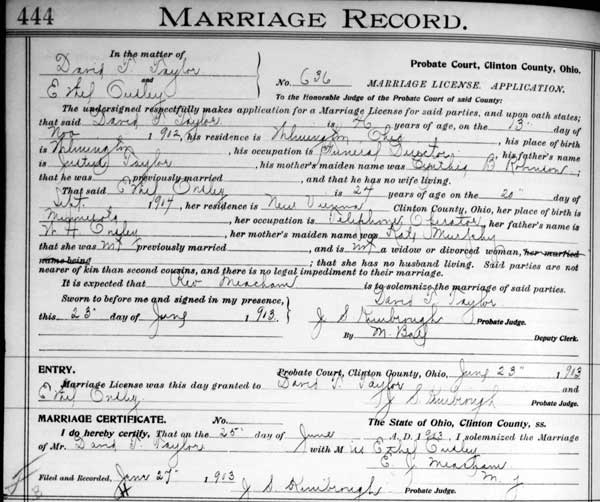 444 MARRIAGE RECORD.
In the matter of
David T. Taylor
and
Ethel Ousley
Probate Court, Clinton County, Ohio.
No. 636 MARRIAGE LICENSE. APPLICATION.
To the Honorable Judge of the Probate Court of said County:
The undersigned respectfully makes application for a Marriage License for said parties, and upon oath states;
that said David T. Taylor is 26 years of age, on the 13" day of
Nov 1 912, his residence is Wilmington Ohio, his place of birth
is Wilmington, his occupation is Funeral Director, his father's name
is Taylor, his mother's maiden name was B Robinson;
that he was previously married , and that he has no wife living.
That said Ethel Ousley is 24 years of age on the 20" day of
Sept. 191, her residence is New Vienna Clinton County, Ohio, her place of birth is
Minnesota, her occupation is Telephone Operator her father's name is
W. H. Ousley, her mother's maiden name was Kate Murphy
that she was not previously married , and is not a widow or divorced woman, her married
name being ; that she has no husband living. Said parties are not
nearer of kin than second cousins, and there is no legal impediment to their marriage.
It is expected that Rev Meacham is to solemnize the marriage of said parties.
David T. Taylor
Sworn to before me and signed in my presence,
this 23" day of June 1 913. J S Kimbrough Probate Judge.
By M. Deputy Clerk.
ENTRY. Probate Court, Clinton County, Ohio, June 23" 1 913
Marriage License was this day granted to David T. Taylor and
Ethel Ousley J S Kimbrough Probate Judge.
MARRIAGE CERTIFICATE. No. The State of Ohio, Clinton County, ss.
I do hereby certify, That on the 25" day of June A. D. 1 913, I solemnized the Marriage
of Mr. David T. Taylor with M iss Ethel Ousley
E. J. Meacham
Filed and Recorded, 27" 1 913 M. G
J S Kimbrough Probate Judge.